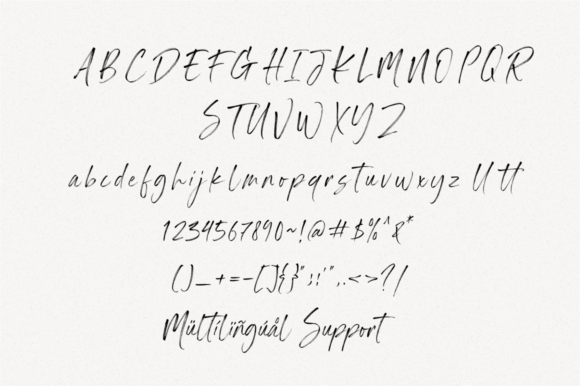 A B C D E F G H I J K L M N O P Q R
S T U V W X Y Z
a b c d e f g h i j k l m n o p q r s t u v w x y z ll tt
1234567890~!@#$%^&*
()_+=-[]{}";:'",.<>?/
Mültilïñgúål Support